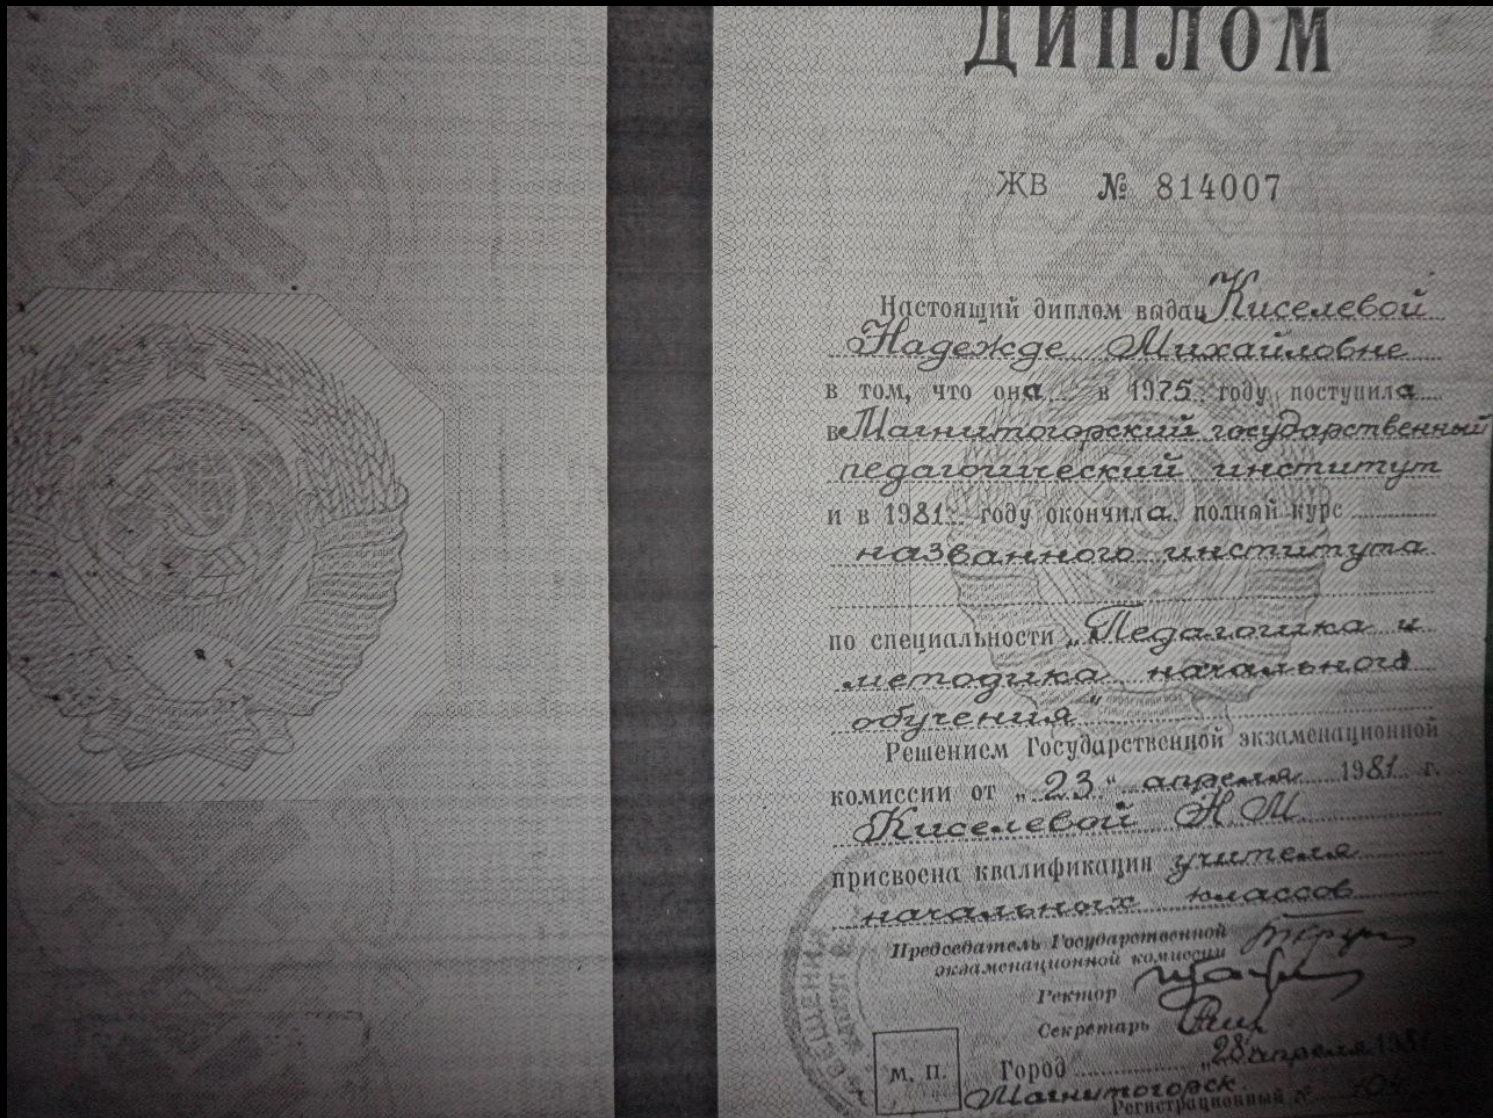 ДИПЛОМ
ЖВ № 814007
Настоящий диплом выдан Киселевой
Надежде Михайловне
в том, что она в 1975 году поступила
в Магнитогорский государственный
педагогический институт
и в 1981 году окончила полный курс
названного института
по специальности „Педагогика и
методика начального
обучения“
Решением Государственной экзаменационной
комиссии от „23“ апреля 1981 г.
Киселевой Н. М.
присвоена квалификация учителя
начальных классов
Председатель Государственной
экзаменационной комиссии
Ректор
Секретарь
М. П.
Город „28 апреля 1981
Магнитогорск
Регистрационный №